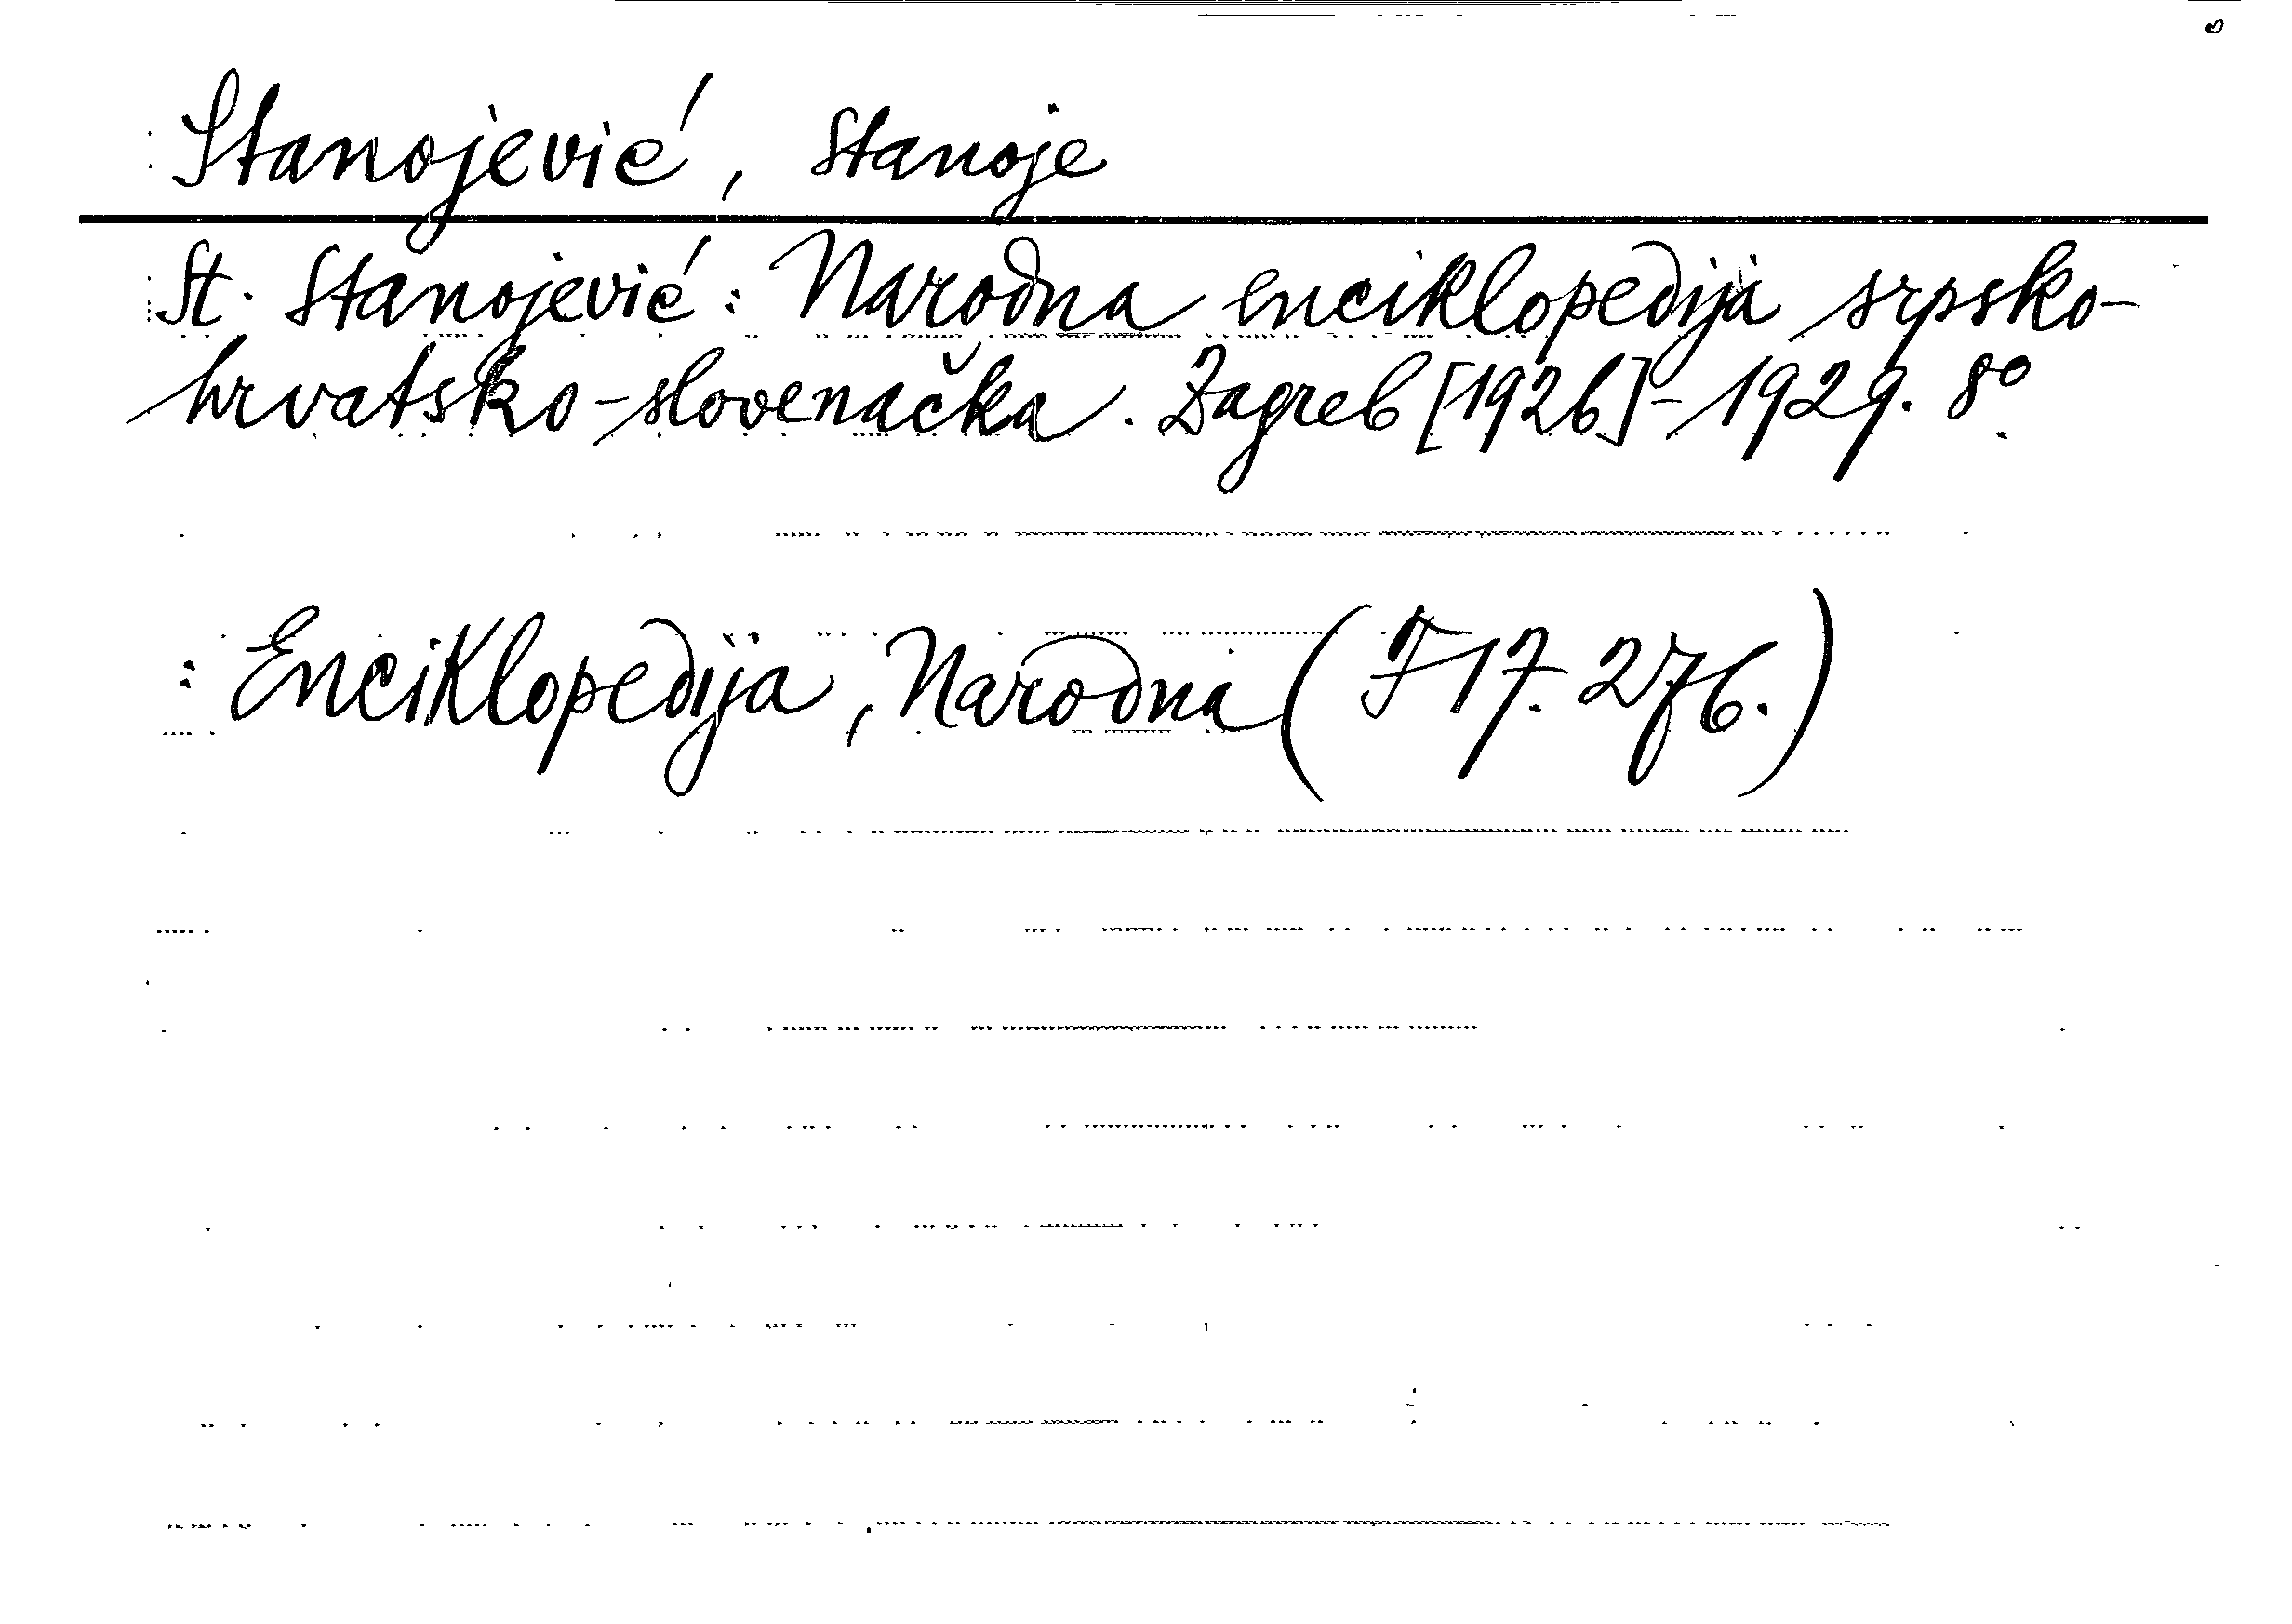 Stanojević, Stanoje
St. Stanojević: Narodna enciklopedija srpsko-
hrvatsko-slovenačka. Zagreb [1926]-1929. 8°.
: Enciklopedija, Narodna (F17.276.)